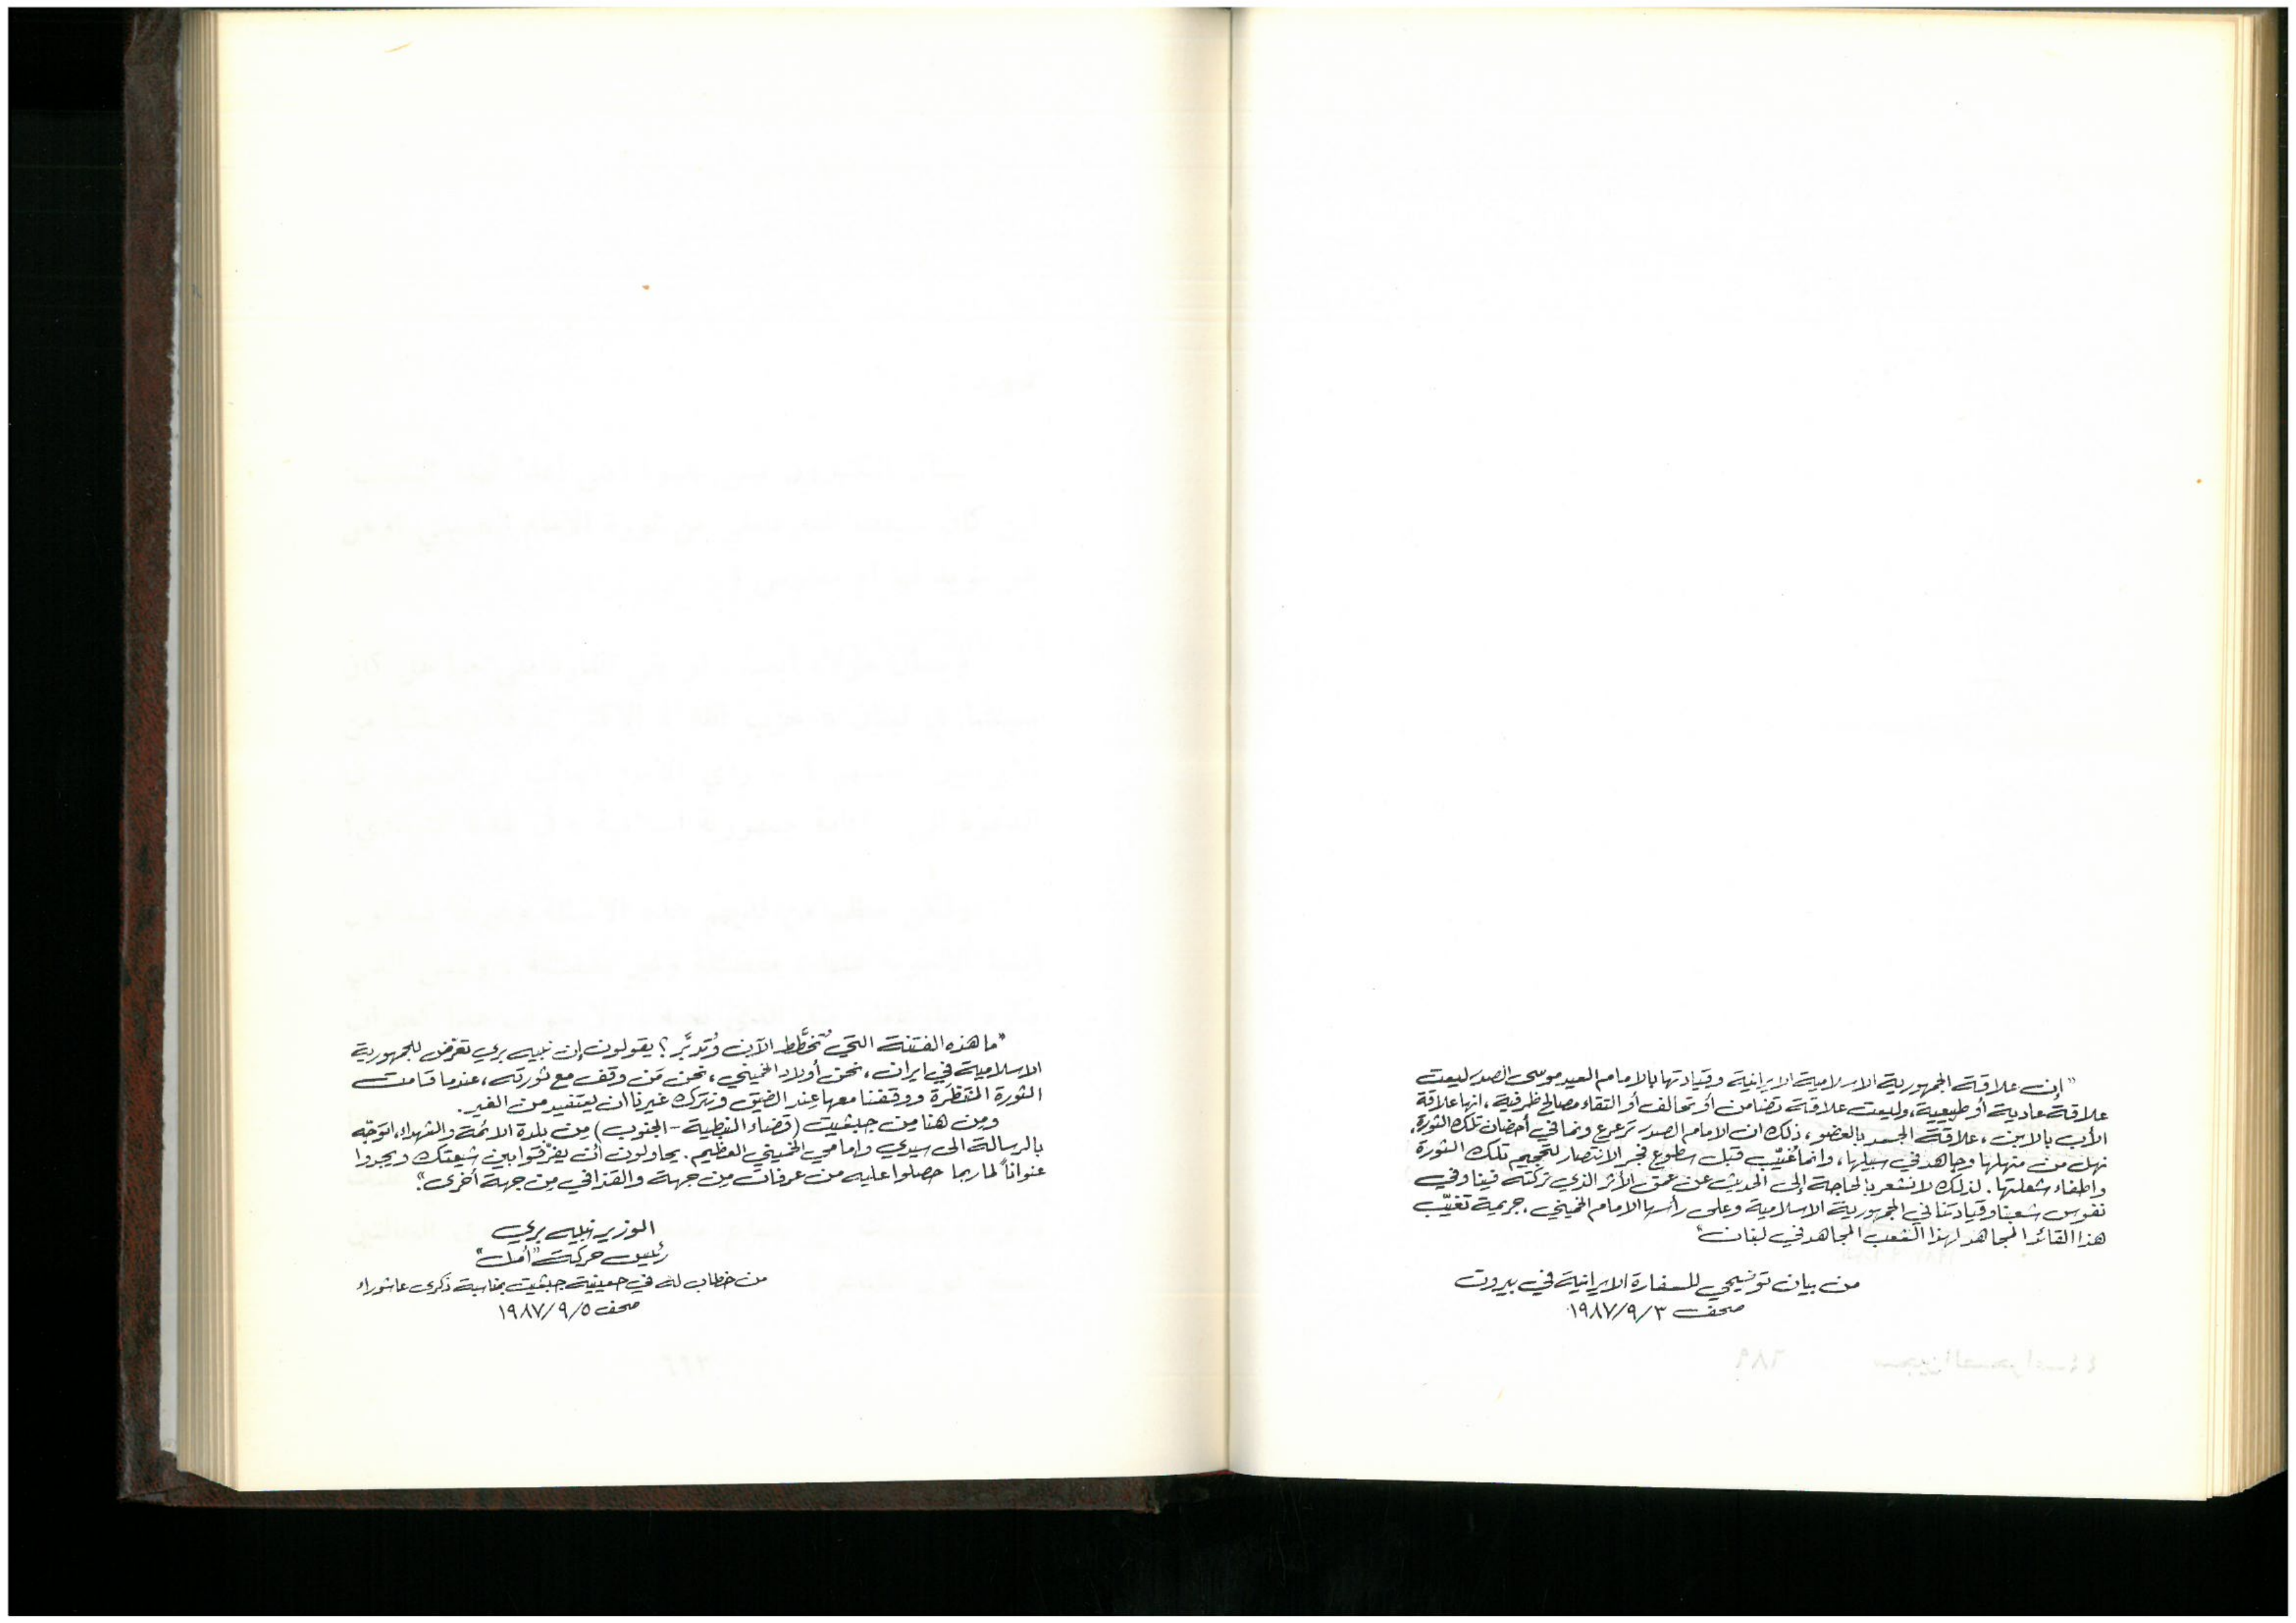 "إن علاقة الجمهورية الاسلامية الايرانية وقيادتها بالامام السيد موسى الصدر ليست
علاقة عادية أو طبيعية، وليست علاقة تضامن أو تحالف أو التقاء مصالح ظرفية، انها علاقة
الأب بالابن، علاقة الجسد بالعضو، ذلك ان الامام الصدر ترعرع ونما في أحضان تلك الثورة،
نهل من منهلها وجاهد في سبيلها، وانما غُيّب قبل سطوع فجر الانتصار لتحجيم تلك الثورة
واطفاء شعلتها. لذلك لا نشعر بالحاجة إلى الحديث عن عمق الأثر الذي تركته فينا وفي
نفوس شعبنا وقيادتنا في الجمهورية الاسلامية وعلى رأسها الامام الخميني، جريمة تغيّب
هذا القائد المجاهد لهذا الشعب المجاهد في لبنان"
من بيان توضيحي للسفارة الايرانية في بيروت
صحف ١٩٨٧/٩/٣
"ما هذه الفتنة التي تُخطَّط الآن وتُدبَّر؟ يقولون إن نبيه بري تعرّض للجمهورية
الاسلامية في ايران، نحن أولاد الخميني، نحن مَن وقف مع ثورته، عندما قامت
الثورة المنتظرة ووقفنا معها عند الضيق ونترك غيرنا ان يستفيد من الغير.
ومن هنا من جبشيت (قضاء النبطية - الجنوب) من بلدة الائمة والشهداء، اتوجّه
بالرسالة الى سيدي وامامي الخميني العظيم. يحاولون أن يفرّقوا بين شيعتك ويجدوا
عنواناً لما ربما حصلوا عليه من عرفات من جهة والقذافي من جهة أخرى".
الوزير نبيه بري
رئيس حركة "أمل"
من خطاب له في حسينية جبشيت بمناسبة ذكرى عاشوراء
صحف ١٩٨٧/٩/٥